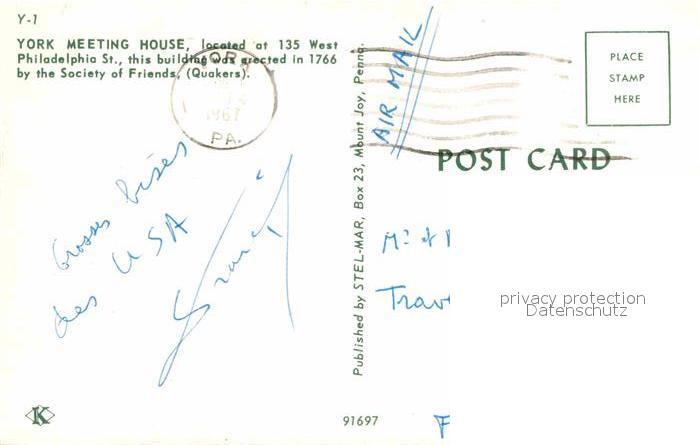 Y-1
YORK MEETING HOUSE, located at 135 West
Philadelphia St., this building was erected in 1766
by the Society of Friends, (Quakers).
YORK
1967
PA.
Grosses bises
des USA
Published by STEL-MAR, Box 23, Mount Joy, Penna.
AIR MAIL
PLACE
STAMP
HERE
POST CARD
privacy protection
Datenschutz
K
91697